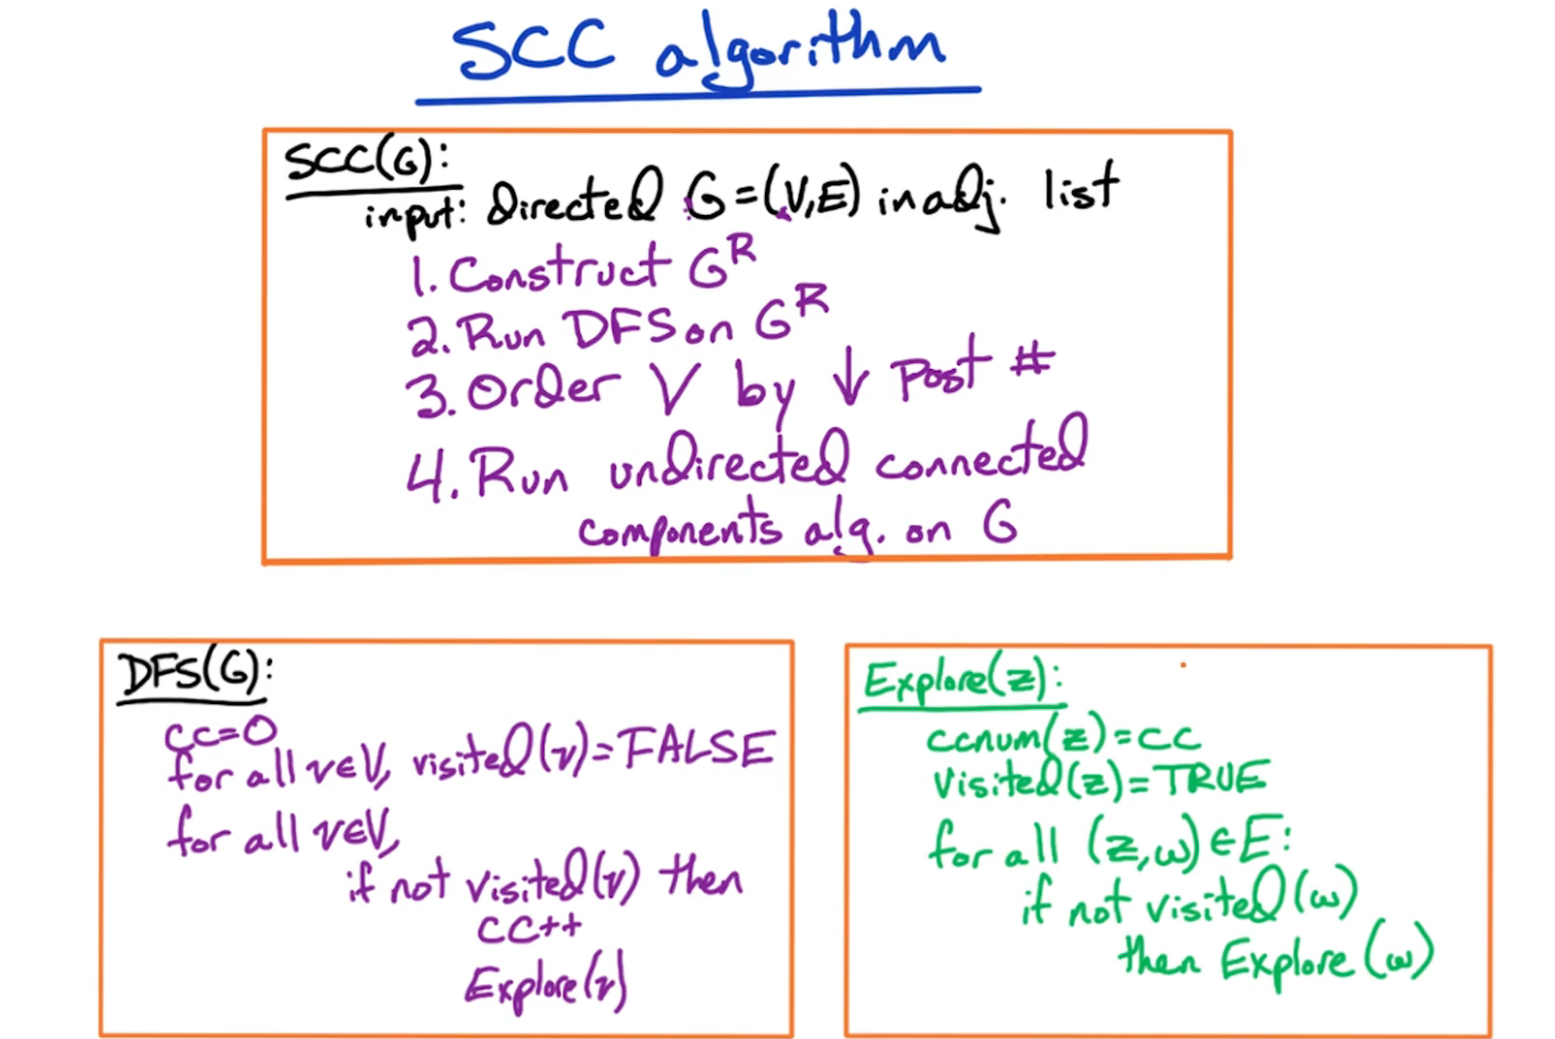 SCC algorithm
SCC(G):
input: directed G=(V,E) in adj. list
1. Construct G^R
2. Run DFS on G^R
3. Order V by ↓ Post #
4. Run undirected connected
components alg. on G
DFS(G):
cc=0
for all v∈V, visited(v)=FALSE
for all v∈V,
if not visited(v) then
cc++
Explore(v)
Explore(z):
ccnum(z)=cc
visited(z)=TRUE
for all (z,w)∈E:
if not visited(w)
then Explore(w)